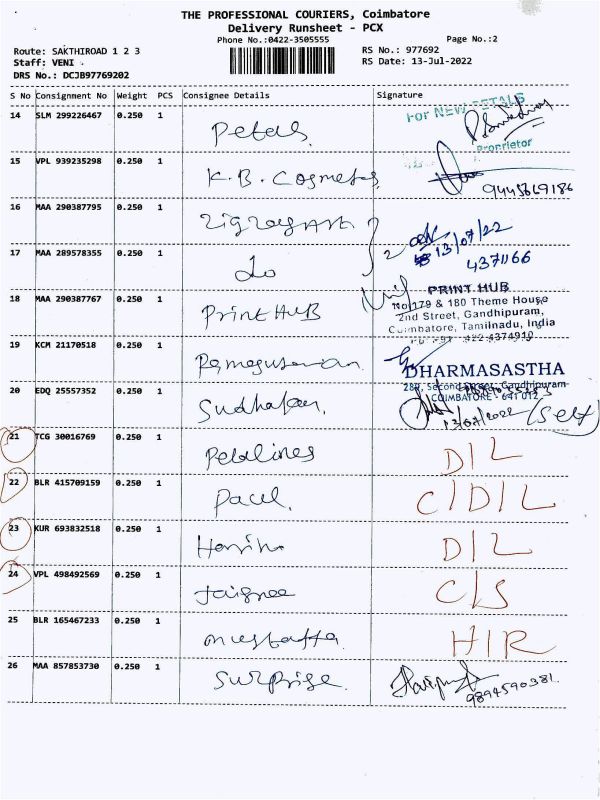 THE PROFESSIONAL COURIERS, Coimbatore
Delivery Runsheet - PCX
Phone No.:0422-3505555
Page No.:2
Route: SAKTHIROAD 1 2 3
RS No.: 977692
Staff: VENI
RS Date: 13-Jul-2022
DRS No.: DCJB97769202
S No Consignment No Weight PCS Consignee Details Signature
14 SLM 299226467 0.250 1 Petals For NEW PETALS
Proprietor
15 VPL 939235298 0.250 1 K.B. Cosmetos 9445669186
16 MAA 290387795 0.250 1 Zigzag 13/07/22
17 MAA 289578355 0.250 1 do 2 4371166
18 MAA 290387767 0.250 1 Print HUB PRINT HUB
No 179 & 180 Theme House
2nd Street, Gandhipuram,
Coimbatore, Tamilnadu, India
19 KCM 21170518 0.250 1 DHARMASASTHA
Second Street, Gandhipuram
COIMBATORE - 641 012
20 EDQ 25557352 0.250 1 Sudhakar. 13/07/2022 (Self)
21 TCG 30016769 0.250 1 Petalines D/L
22 BLR 415709159 0.250 1 Paul. C/D/L
23 KUR 693832518 0.250 1 D/L
24 VPL 498492569 0.250 1 Jaignee C/S
25 BLR 165467233 0.250 1 mustaffa. H/R
26 MAA 857853730 0.250 1 Surprise. 9894590381.